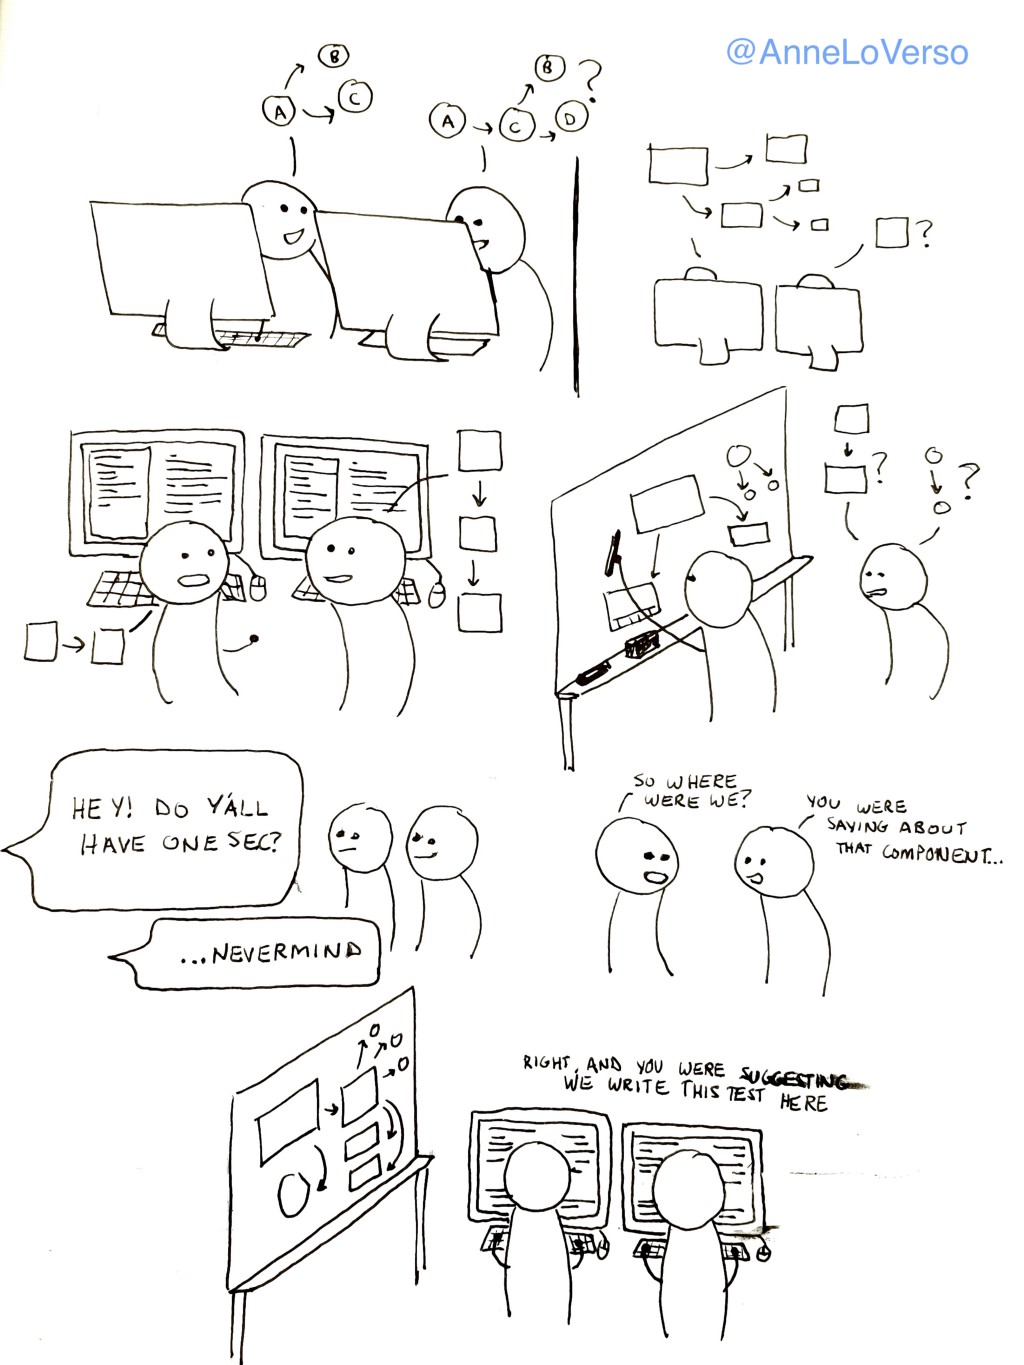 @AnneLoVerso
B
A
C
B
?
A
C
D
?
?
?
HEY! DO Y'ALL
HAVE ONE SEC?
...NEVERMIND
SO WHERE
WERE WE?
YOU WERE
SAYING ABOUT
THAT COMPONENT...
RIGHT, AND YOU WERE SUGGESTING
WE WRITE THIS TEST HERE